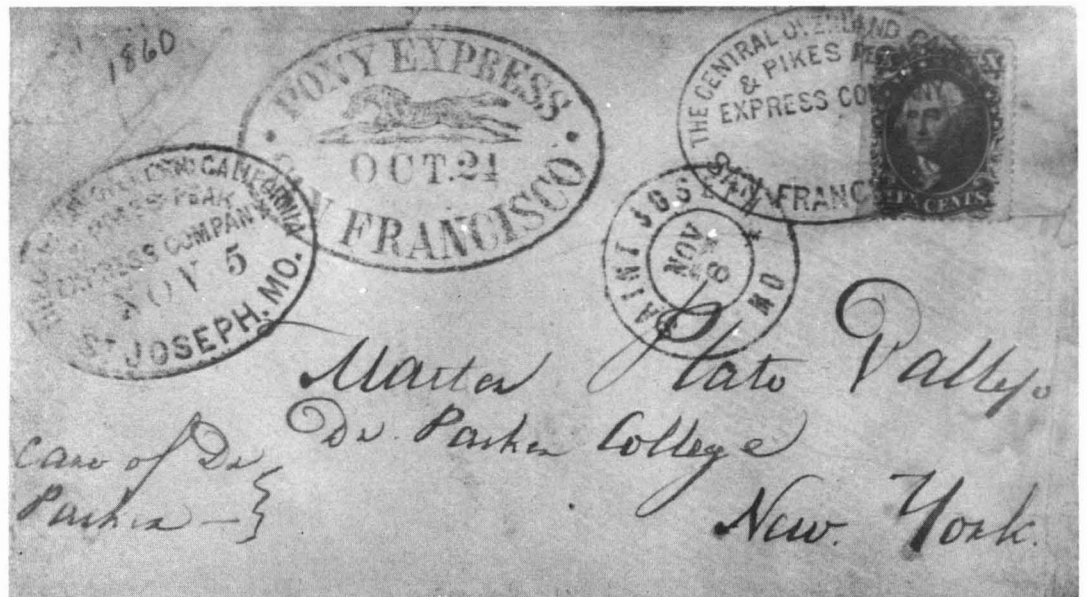 1860
PONY EXPRESS
OCT. 21
SAN FRANCISCO
THE CENTRAL OVERLAND
& PIKES PEAK
EXPRESS COMPANY
SAN FRANC
TEN CENTS
CALIFORNIA
PIKES PEAK
EXPRESS COMPANY
NOV 5
ST JOSEPH, MO.
SAINT JOSEPH
NOV
8
MO
Master Plato Vallejo
Dr. Parker College
New. York.
Care of Dr
Parker